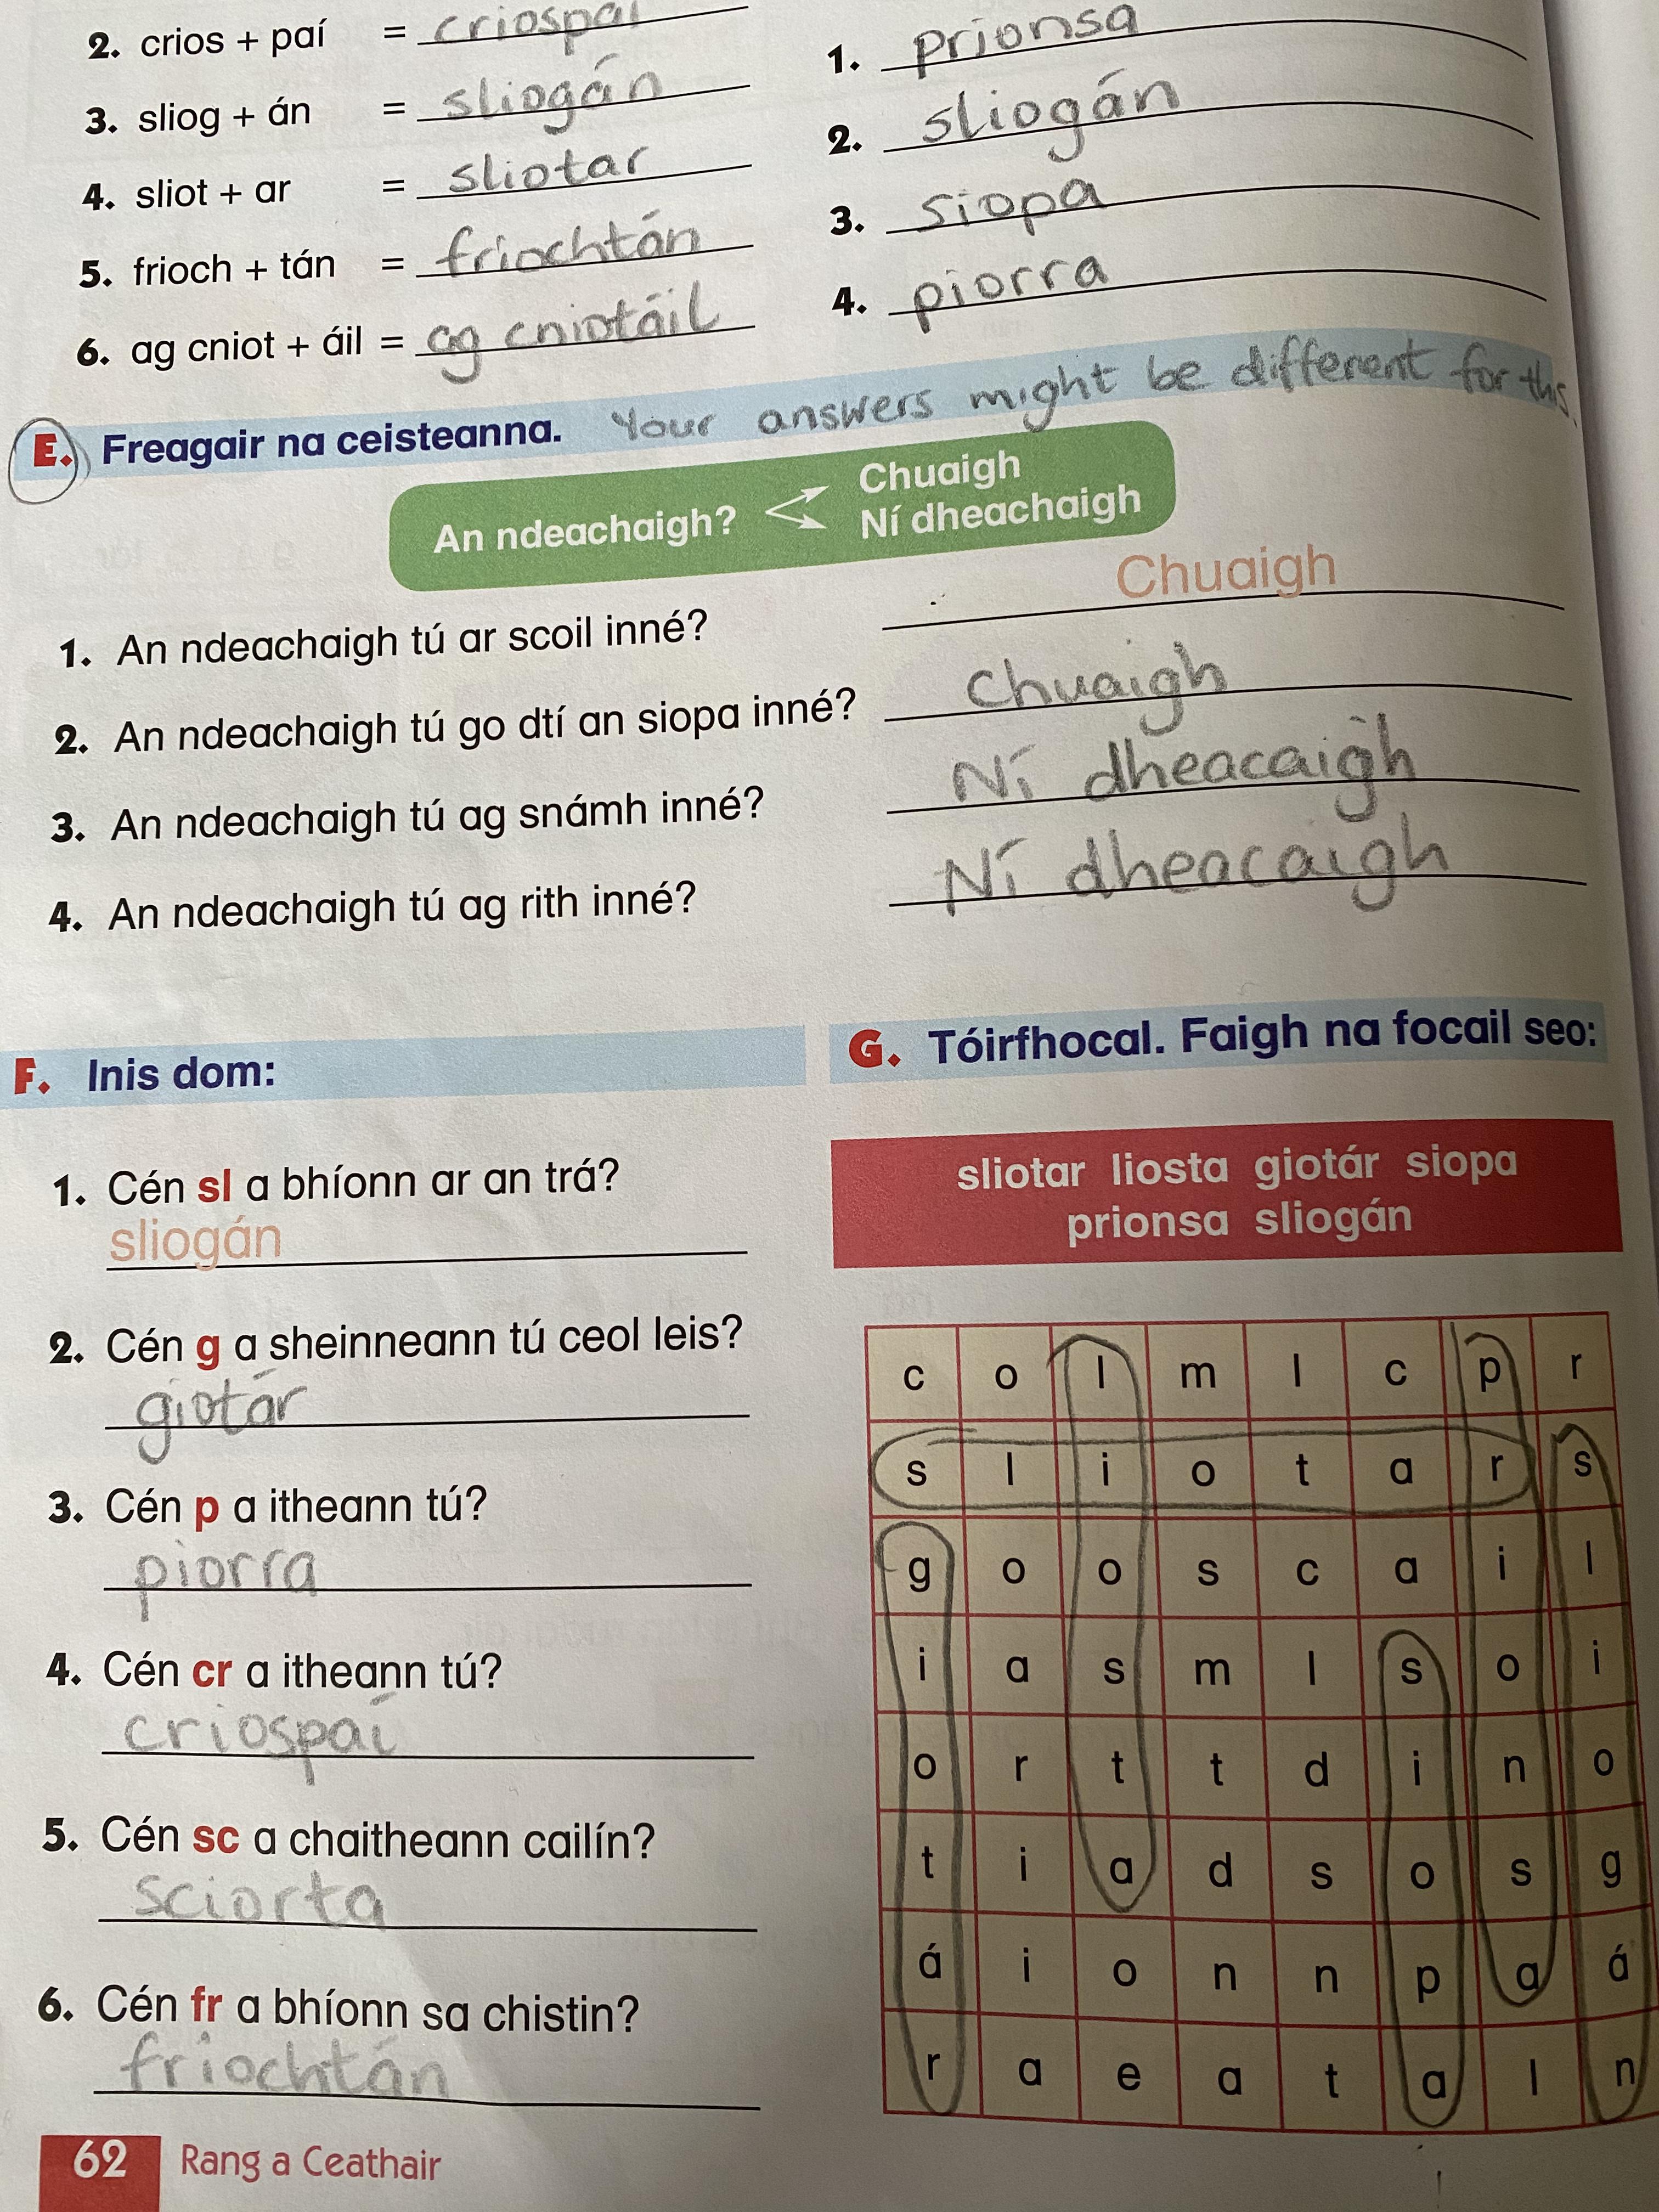 2. crios + paí = criospaí
3. sliog + án = sliogán
4. sliot + ar = sliotar
5. frioch + tán = friochtán
6. ag cniot + áil = ag cniotáil
1. prionsa
2. sliogán
3. siopa
4. piorra
E. Freagair na ceisteanna. Your answers might be different for this.
An ndeachaigh?
Chuaigh
Ní dheachaigh
1. An ndeachaigh tú ar scoil inné? Chuaigh
2. An ndeachaigh tú go dtí an siopa inné? Chuaigh
3. An ndeachaigh tú ag snámh inné? Ní dheacaigh
4. An ndeachaigh tú ag rith inné? Ní dheacaigh
F. Inis dom:
1. Cén sl a bhíonn ar an trá?
sliogán
2. Cén g a sheinneann tú ceol leis?
giotár
3. Cén p a itheann tú?
piorra
4. Cén cr a itheann tú?
criospaí
5. Cén sc a chaitheann cailín?
sciorta
6. Cén fr a bhíonn sa chistin?
friochtán
G. Tóirfhocal. Faigh na focail seo:
sliotar liosta giotár siopa
prionsa sliogán
c o l m l c p r
s l i o t a r s
g o o s c a i l
i a s m l s o i
o r t t d i n o
t i a d s o s g
á i o n n p a á
r a e a t a l n
62 Rang a Ceathair